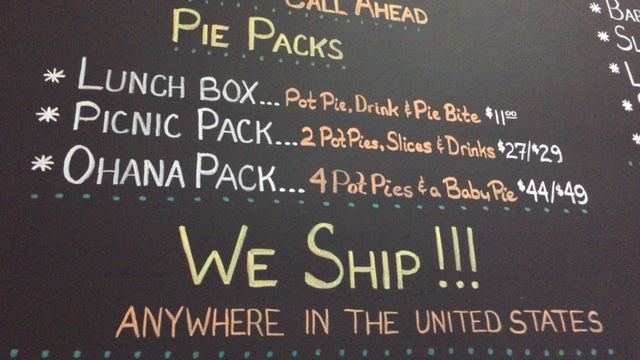 CALL AHEAD
PIE PACKS
* LUNCH BOX... Pot Pie, Drink & Pie Bite $11.00
* PICNIC PACK... 2 Pot Pies, Slices & Drinks $27/$29
* OHANA PACK... 4 Pot Pies & a Baby Pie $44/$49
WE SHIP!!!
ANYWHERE IN THE UNITED STATES